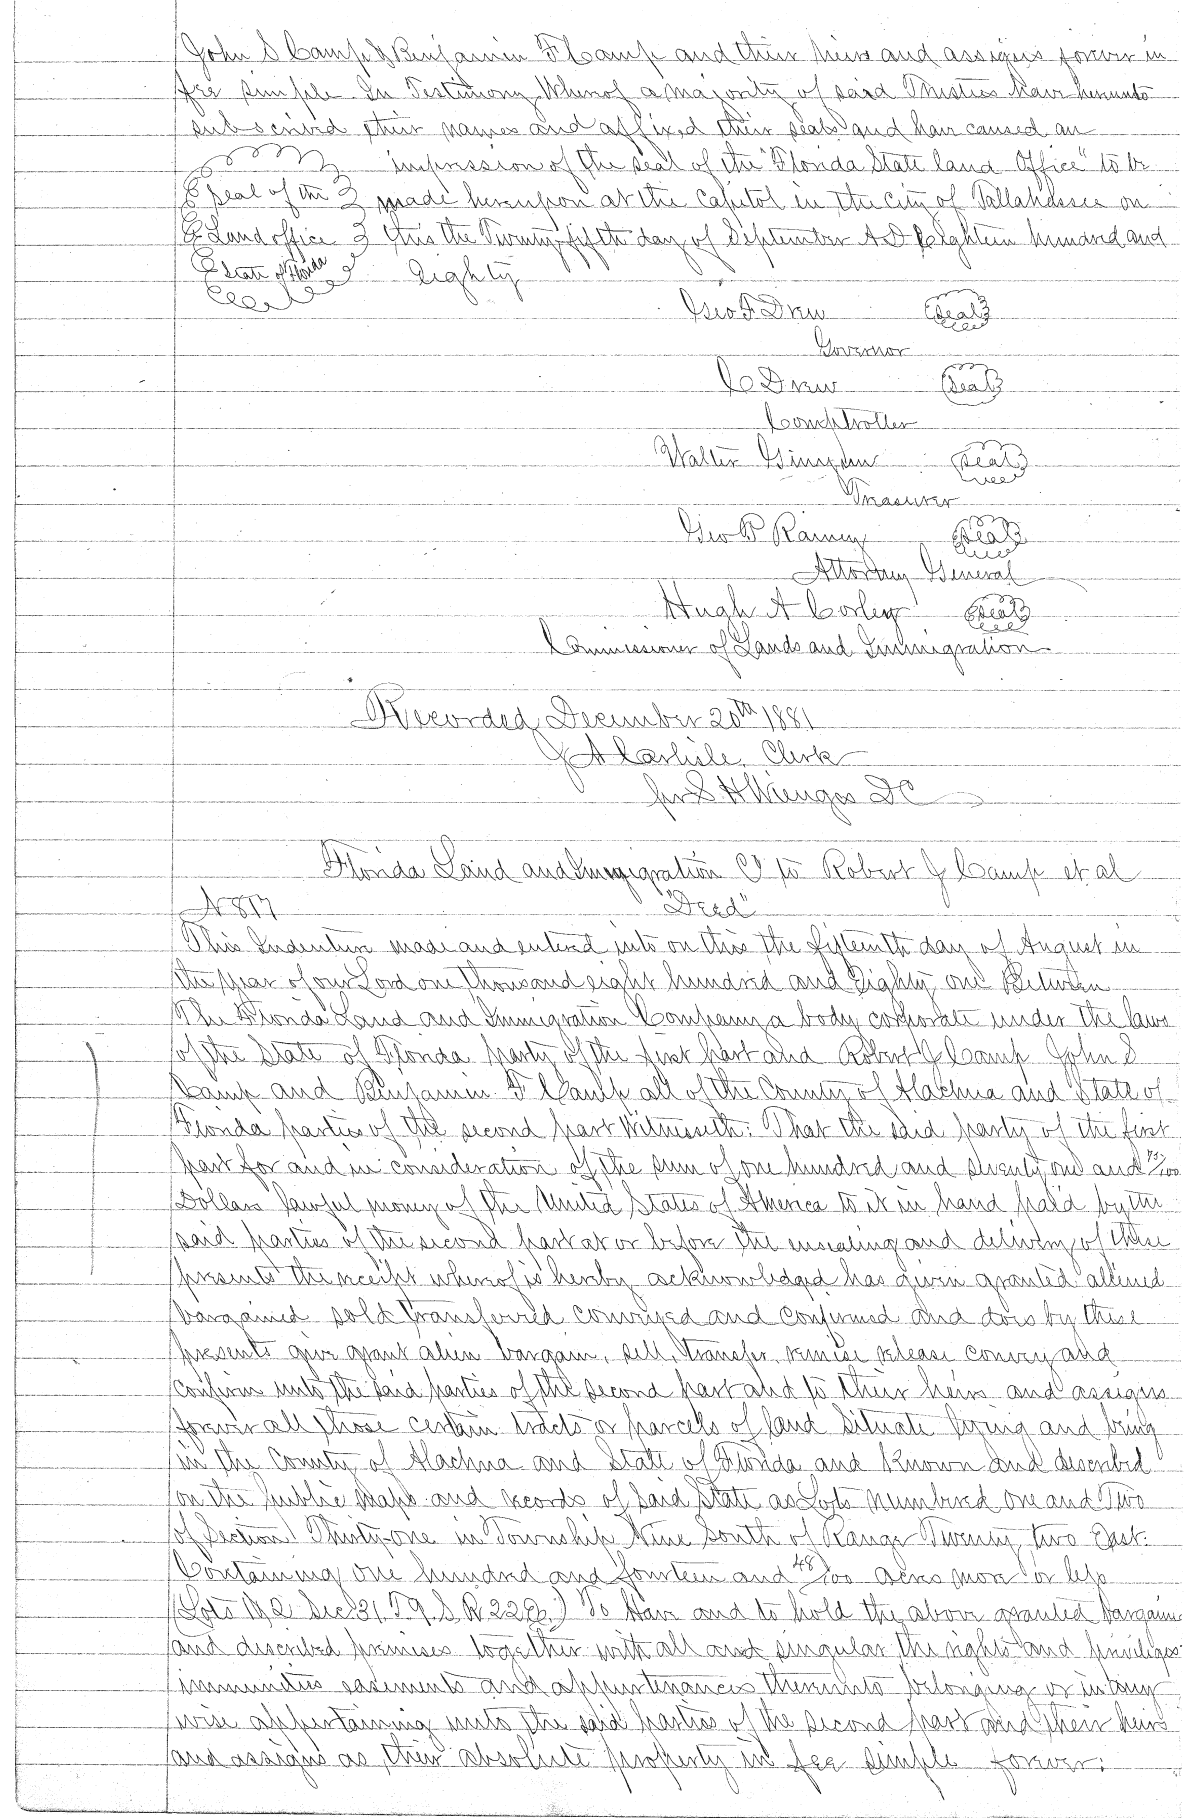 John S Camp & Benjamin F Camp and their heirs and assigns forever in
fee simple In Testimony Whereof a majority of said Trustees have hereunto
subscribed their names and affixed their seals and have caused an
impression of the seal of the "Florida State land Office" to be
Seal of the made hereupon at the Capitol in the City of Tallahassee on
Land office this the Twenty-fifth day of September A.D. Eighteen hundred and
State of Florida eighty
Geo F Drew Seal
Governor
C Drew Seal
Comptroller
Walter Gwynn Seal
Treasurer
Geo P Raney Seal
Attorney General
Hugh A Corley Seal
Commissioner of Lands and Immigration
Recorded December 20th 1881
J A Carlisle, Clerk
per S H Wienges DC
Florida Land and Immigration Co to Robert J Camp et al
N 817 "Deed"
This Indenture made and entered into on this the fifteenth day of August in
the Year of our Lord one thousand eight hundred and Eighty one Between
The Florida Land and Immigration Company a body corporate under the laws
of the State of Florida party of the first part and Robert J Camp John S
Camp and Benjamin F Camp all of the County of Alachua and State of
Florida parties of the second part Witnesseth: That the said party of the first
part for and in consideration of the sum of one hundred and seventy one and 75/100
Dollars lawful money of the United States of America to it in hand paid by the
said parties of the second part at or before the ensealing and delivery of these
presents the receipt whereof is hereby acknowledged has given granted aliened
bargained sold transferred conveyed and confirmed and does by these
presents give grant alien bargain, sell, transfer, remise release convey and
confirm unto the said parties of the second part and to their heirs and assigns
forever all those certain tracts or parcels of land Situate lying and being
in the County of Alachua and State of Florida and Known and described
on the public maps and records of said State as Lots numbered one and Two
of Section Thirty-one in Township Nine South of Range Twenty two East.
Containing one hundred and fourteen and 48/100 acres more or less
(Lots 1 & 2 Sec 31, T. 9. S. R 22 E.) To Have and to hold the above granted bargained
and described premises together with all and singular the rights and privileges
immunities easements and appurtenances thereunto belonging or in any
wise appertaining unto the said parties of the second part and their heirs
and assigns as their absolute property in fee simple forever: